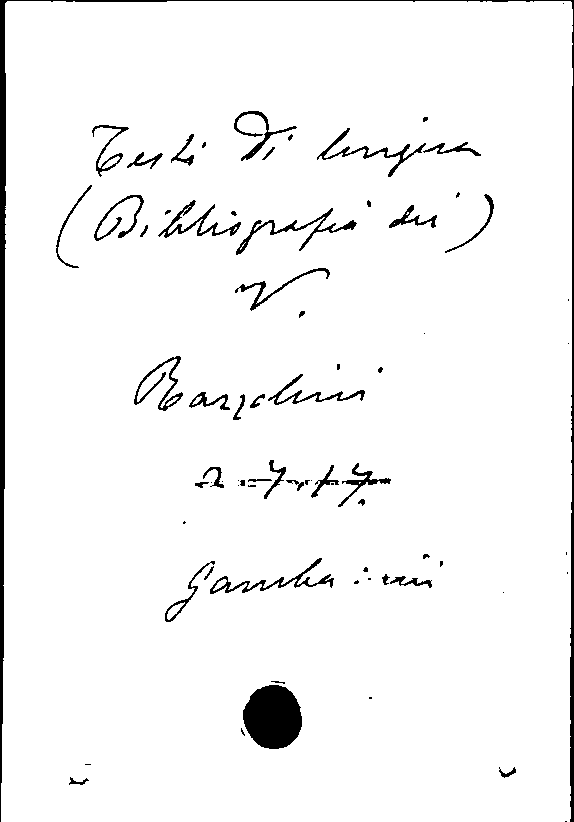 Testi di lingua
(Bibliografia dei)
V.
Razzolini
Gamba: